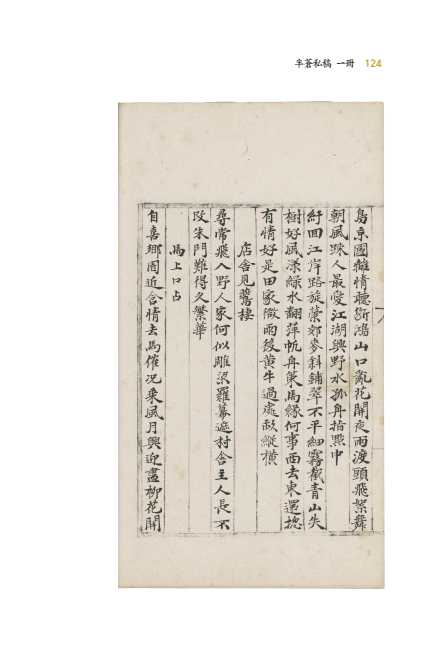 半蒼私稿 一冊 124
島京國離情聽斷鴻山口亂花開夜雨渡頭飛絮舞
朝風踈人最愛江湖興野水孤舟指點中
紆回江岸路旋縈郊麥斜鋪翠不平細霧截青山失
樹好風漾綠水翻萍帆舟策馬緣何事西去東還摠
有情好是田家微雨後黃牛過處畝縱橫
店舍見鷰棲
尋常飛入野人家何似雕梁羅幕遮村舍主人長不
改朱門難得久繁華
馬上口占
自喜鄕園近含情去馬催況乘風月興迎盡柳花開